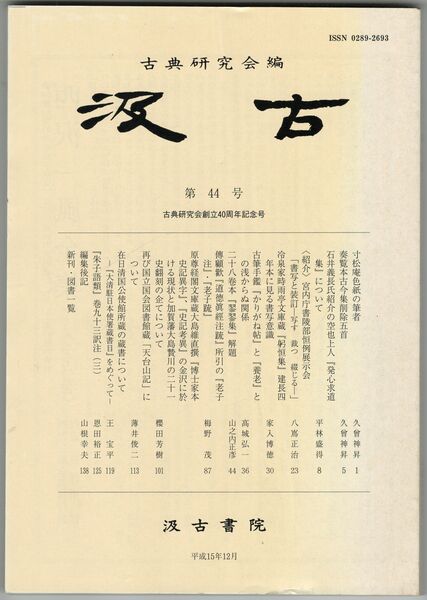 ISSN 0289-2693
古典研究会編
汲古
第 44 号
古典研究会創立40周年記念号
寸松庵色紙の筆者 久曾神昇 1
奏覧本古今集削除五首 久曾神昇 5
石井義長氏紹介の空也上人『発心求道
集』について 平林盛得 8
〈紹介〉宮内庁書陵部恒例展示会
「書写と装訂―写す 裁つ 綴じる―」 八嶌正治 23
冷泉家時雨亭文庫蔵『躬恒集』建長四
年本に見る書写意識 家入博徳 30
古筆手鑑『かりがね帖』と『養老』と
の浅からぬ関係 高城弘一 36
二十八巻本『翏翏集』解題 山之内正彦 44
傳顧歓『道徳眞經注疏』所引の『老子
注』・『老子疏』 梅野 茂 87
原尊経閣文庫蔵大島維直撰『博士家本
史記異字』、『史記考異』の金沢に於
ける現状と加賀藩大島贄川の二十一
史翻刻の企てについて 櫻田芳樹 101
再び国立国会図書館蔵『天台山記』に
ついて 薄井俊二 113
在日清国公使館所蔵の蔵書について
―『大清駐日本使署蔵書目』をめぐって― 王 宝平 119
『朱子語類』巻九十三訳注(三) 恩田裕正 125
編集後記 山根幸夫 138
新刊・図書一覧
汲古書院
平成15年12月